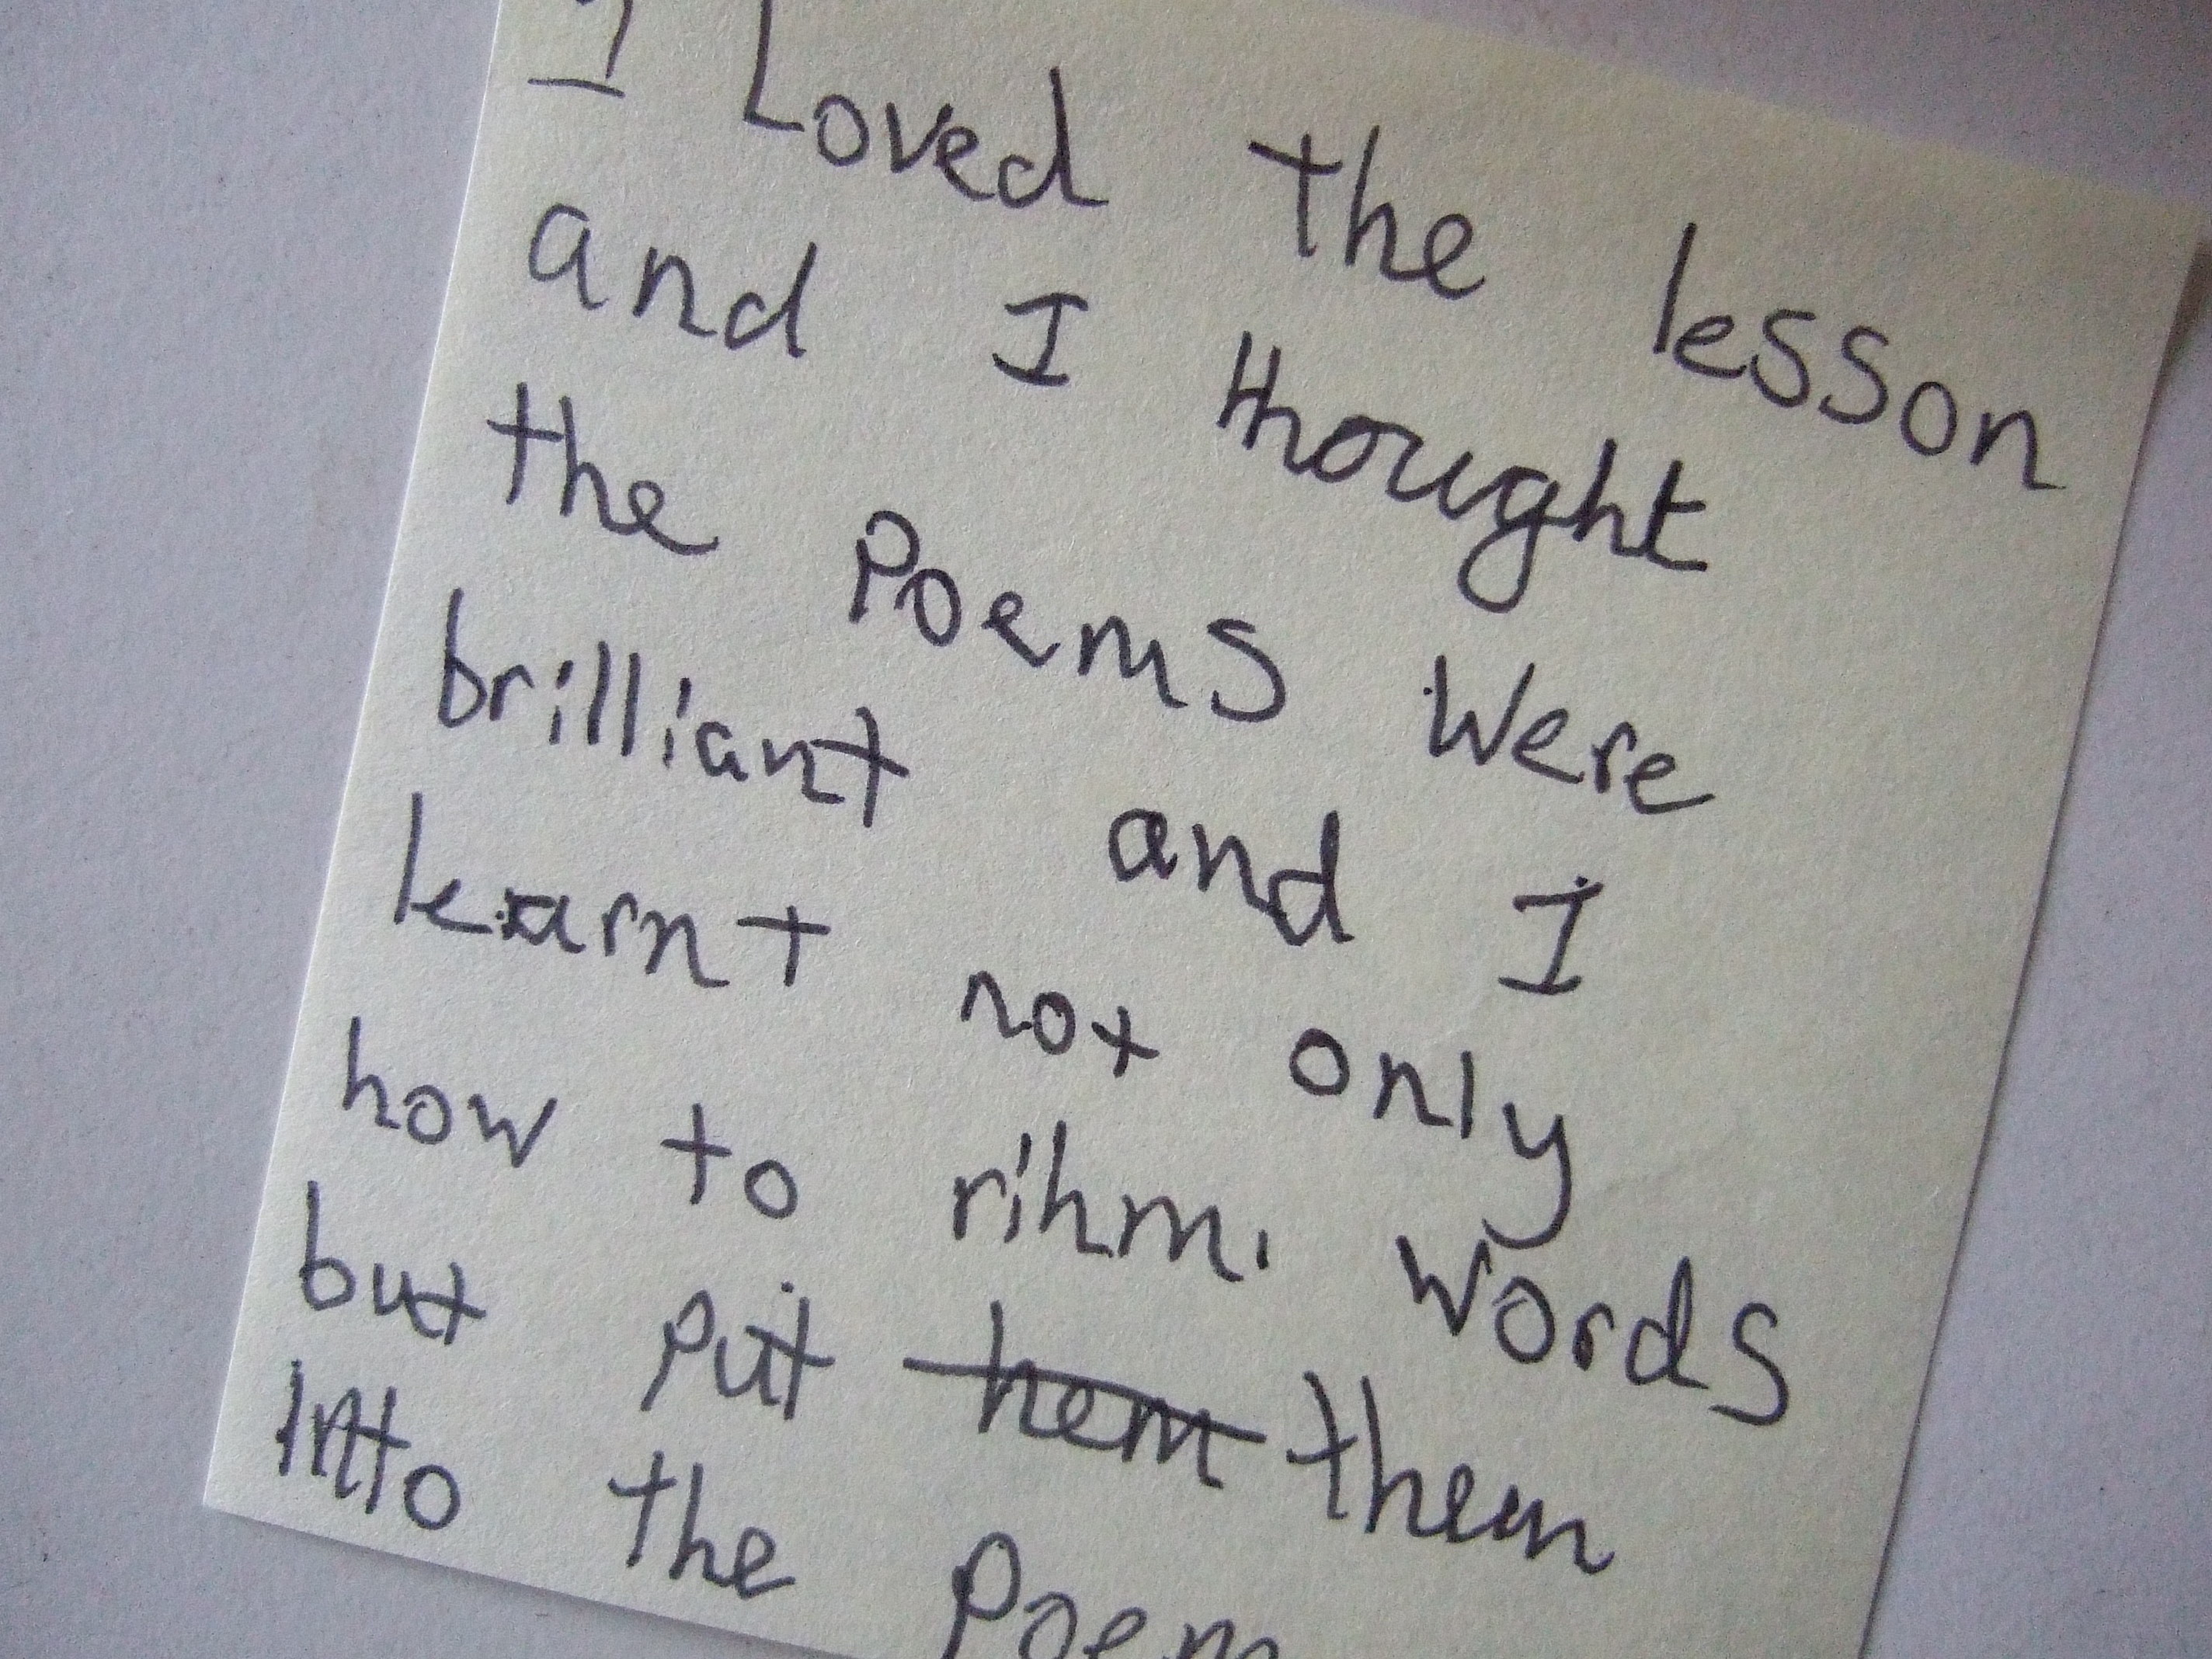 I Loved the lesson
and I thought
the Poems Were
brilliant and I
learnt not only
how to rihm. words
but put them them
into the Poem